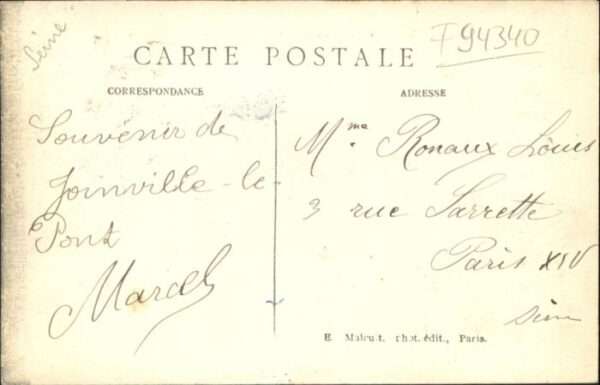 Seine
F94340
CARTE POSTALE
CORRESPONDANCE
ADRESSE
Souvenir de
Joinville-le-
Pont
Marcel
Mme Ronaux Louis
3 rue Sarrette
Paris XIV
E. Malcuit. Phot. édit., Paris.